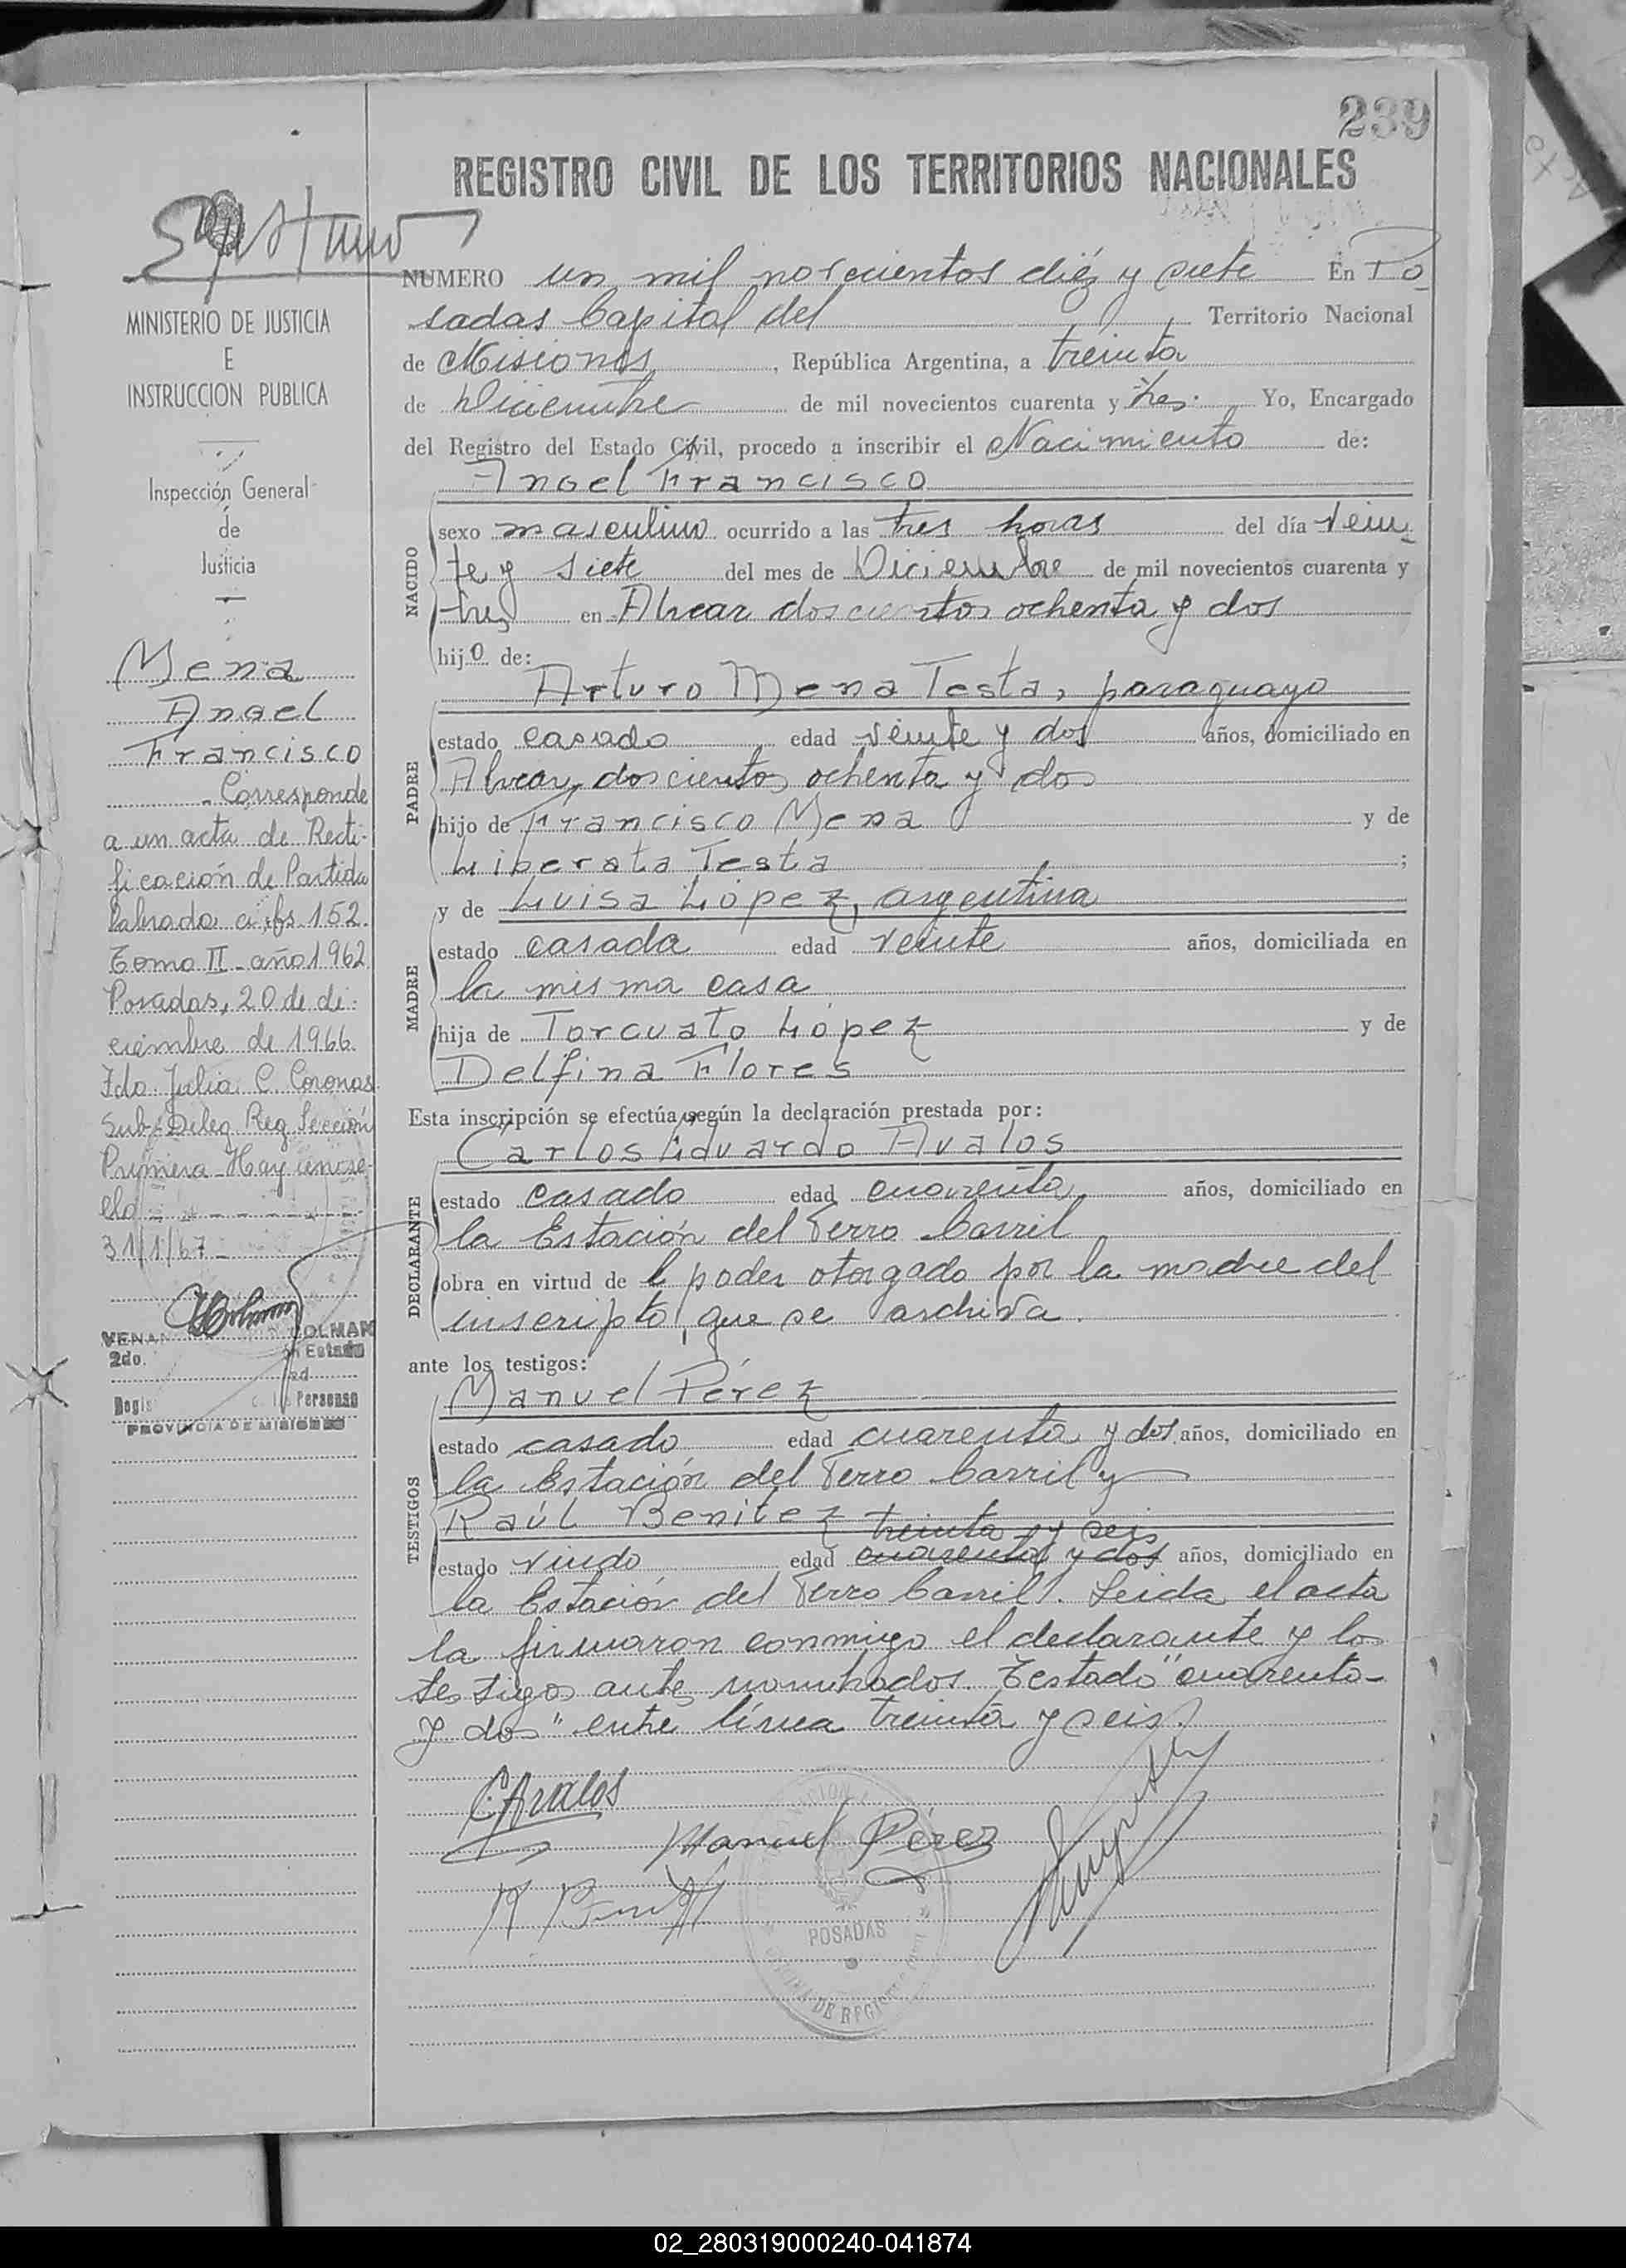 239
REGISTRO CIVIL DE LOS TERRITORIOS NACIONALES
MINISTERIO DE JUSTICIA
E
INSTRUCCION PUBLICA
Inspección General
de
Justicia
Mena
Angel
Francisco
Corresponde
a un acta de Recti-
ficación de Partida
labrada a fs. 152.
Tomo II - año 1962
Posadas, 20 de di-
ciembre de 1966.
Fdo. Julia C. Coronas
Sub-Deleg. Reg. Sección
Primera - Hay un se-
llo
31/1/67
COLMAN
2do.
PROVINCIA DE MISIONES
NUMERO un mil novecientos diéz y siete En Po
sadas Capital del Territorio Nacional
de Misiones, República Argentina, a treinta
de Diciembre de mil novecientos cuarenta y tres. Yo, Encargado
del Registro del Estado Civil, procedo a inscribir el Nacimiento de:
Angel Francisco
NACIDO
sexo masculino ocurrido a las tres horas del día vein
te y siete del mes de Diciembre de mil novecientos cuarenta y
tres en Alvear doscientos ochenta y dos
hijo de:
Arturo Mena Testa, paraguayo
PADRE
estado casado edad veinte y dos años, domiciliado en
Alvear doscientos ochenta y dos
hijo de Francisco Mena y de
Liberata Testa ;
y de Luisa López, argentina
MADRE
estado casada edad veinte años, domiciliada en
la misma casa
hija de Torcuato López y de
Delfina Flores
Esta inscripción se efectúa según la declaración prestada por:
Carlos Eduardo Avalos
DECLARANTE
estado casado edad cuarenta años, domiciliado en
la Estación del Ferro Carril
obra en virtud de l poder otorgado por la madre del
inscripto, que se archiva.
ante los testigos:
Manuel Pérez
TESTIGOS
estado casado edad cuarenta y dos años, domiciliado en
la Estación del Ferro Carril y
Raúl Benitez
treinta y seis
estado viudo edad cuarenta y dos años, domiciliado en
la Estación del Ferro Carril. Leida el acta
la firmaron conmigo el declarante y los
testigos ante nombrados. Testado "cuarenta
y dos" entre línea treinta y seis.
C. Avalos
Manuel Pérez
POSADAS
02_280319000240-041874